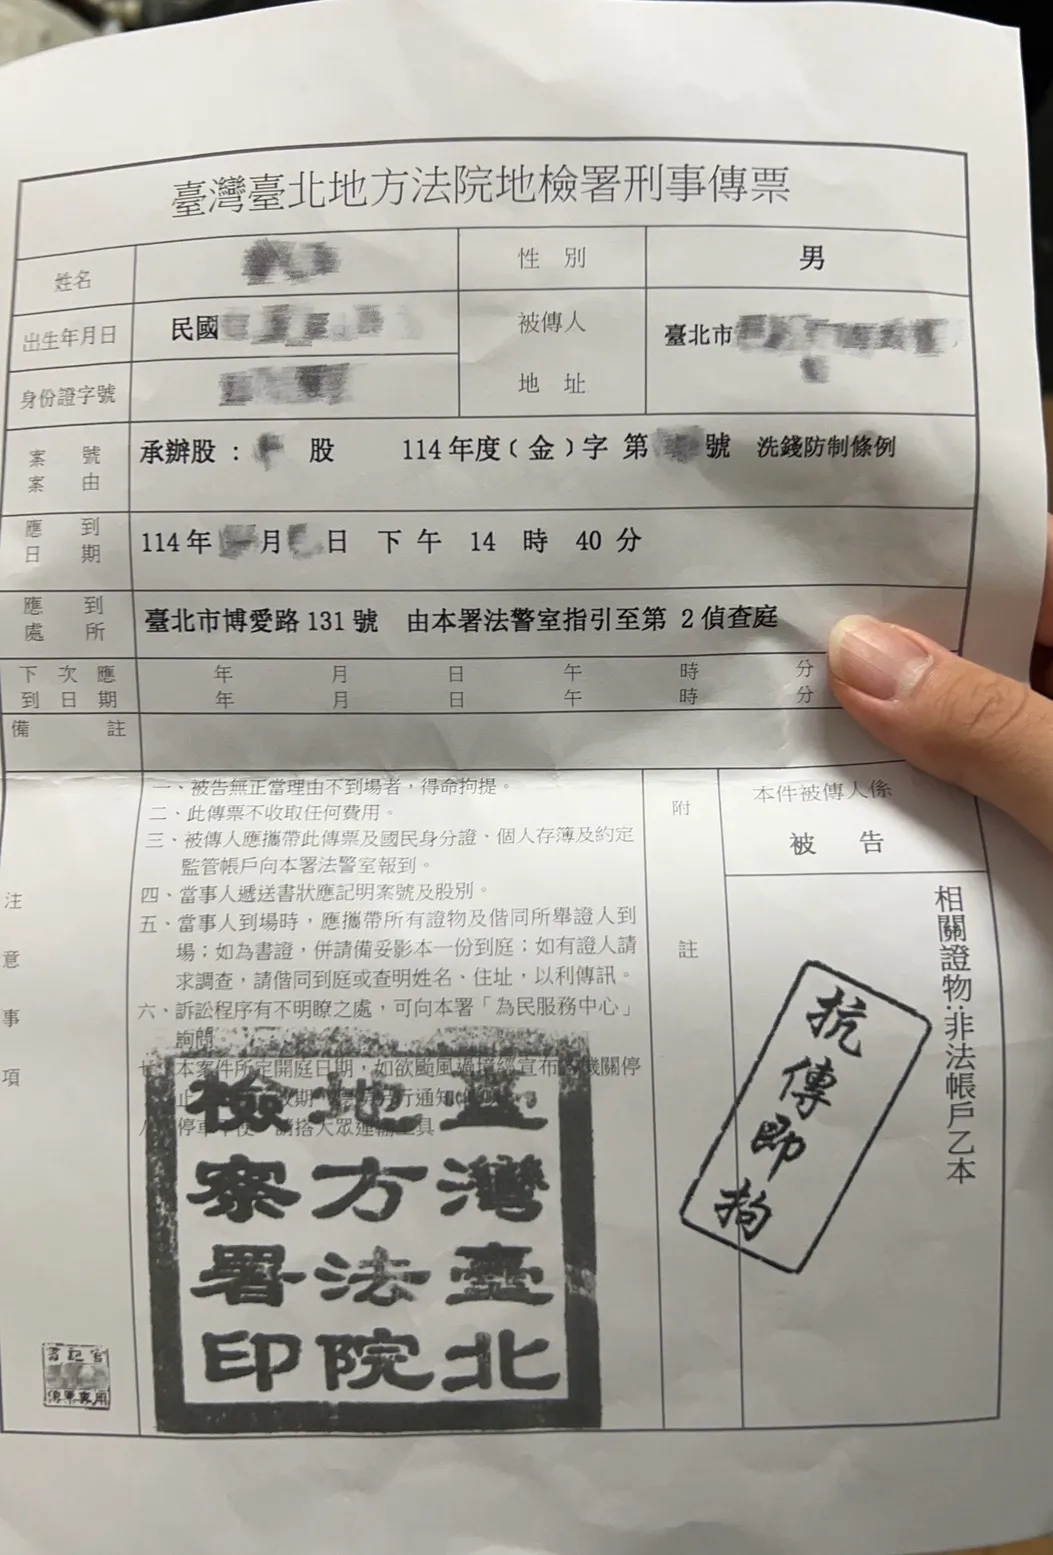 臺灣臺北地方法院地檢署刑事傳票
姓名
性 別
男
出生年月日
民國
被傳人
地 址
臺北市
身份證字號
案 號
案 由
承辦股: 股 114年度(金)字 第 號 洗錢防制條例
應 到
日 期
114年 月 日 下 午 14 時 40 分
應 到
處 所
臺北市博愛路131號 由本署法警室指引至第 2偵查庭
下 次 應
到 日 期
年 月 日 午 時 分
年 月 日 午 時 分
備 註
注 意 事 項
一、被告無正當理由不到場者,得命拘提。
二、此傳票不收取任何費用。
三、被傳人應攜帶此傳票及國民身分證、個人存簿及約定
監管帳戶向本署法警室報到。
四、當事人遞送書狀應記明案號及股別。
五、當事人到場時,應攜帶所有證物及偕同所舉證人到
場;如為書證,併請備妥影本一份到庭;如有證人請
求調查,請偕同到庭或查明姓名、住址,以利傳訊。
六、訴訟程序有不明瞭之處,可向本署「為民服務中心」
詢問
本案件所定開庭日期,如欲颱風過境經宣布 機關停
止 改期 行通知
停車不便 請搭大眾運輸工具
附 註
本件被傳人係
被 告
相關證物:非法帳戶乙本
抗傳即拘
臺灣臺北
地方法院
檢察署印
書記官